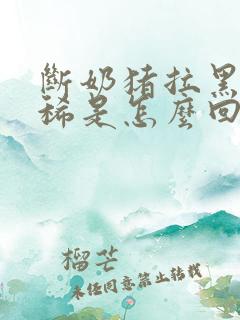 斷奶猪拉黑
稀是怎麽回
榴芒
未经同意禁止转载